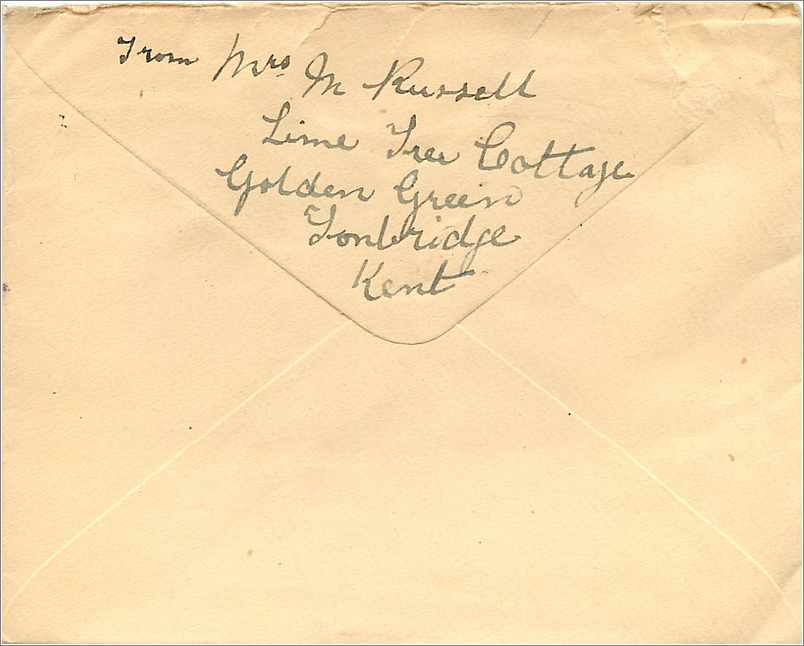 From Mrs M Russell
Lime Tree Cottage
Golden Green
Tonbridge
Kent